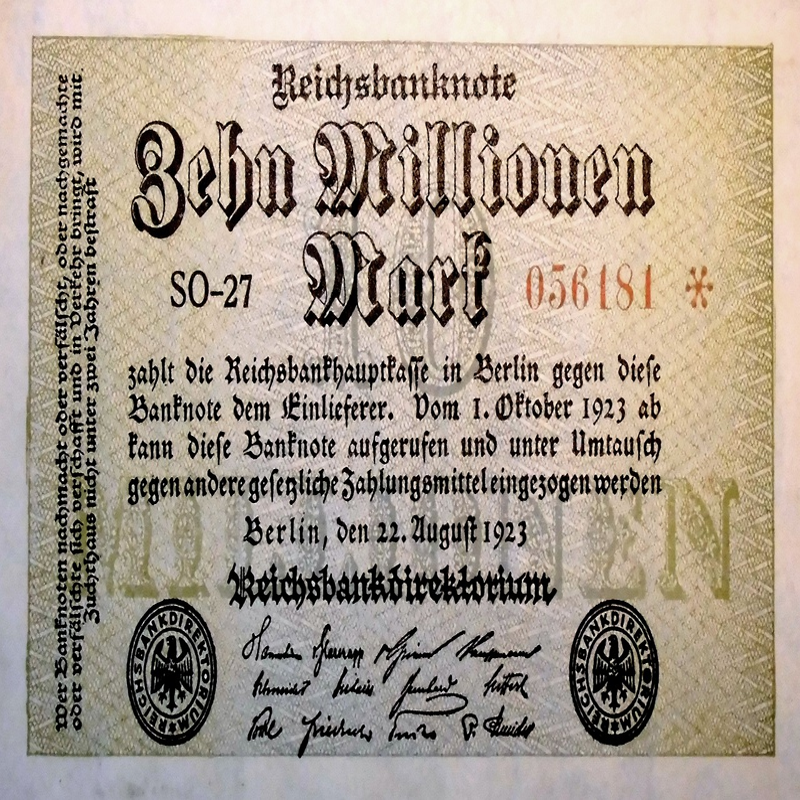 Reichsbanknote
Zehn Millionen
Mark
SO-27
056181 *
zahlt die Reichsbankhauptkasse in Berlin gegen diese
Banknote dem Einlieferer. Vom 1. Oktober 1923 ab
kann diese Banknote aufgerufen und unter Umtausch
gegen andere gesetzliche Zahlungsmittel eingezogen werden
Berlin, den 22. August 1923
Reichsbankdirektorium
REICHSBANKDIREKTORIUM
REICHSBANKDIREKTORIUM
Wer Banknoten nachmacht oder verfälscht, oder nachgemachte
oder verfälschte sich verschafft und in Verkehr bringt, wird mit
Zuchthaus nicht unter zwei Jahren bestraft
10
MILLIONEN